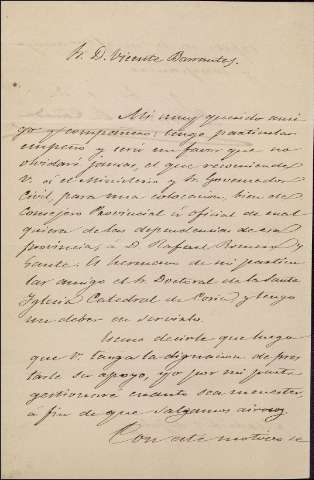 Sr. D. Vicente Barrantes.
Mi muy querido ami-
go y compañero: tengo particular
empeño y será un favor que no
olvidaré jamas, el que recomiende
V. á el Ministerio y Sr. Governador
Civil, para una colocacion, bien de
Consejero Provincial ú oficial de cual
quiera de las dependencias de esa
provincia, á D. Rafael Romero y
Gante. Es hermano de mi particu
lar amigo el Sr. Doctoral de la Santa
Yglesia Catedral de Coria y tengo
un deber en servirle.
decirle que luego
que V. tenga la dignacion de pres
tarle su apoyo, yo por mi parte
gestionaré cuanto sea menester
á fin de que salgamos airosos
Con este motivo se